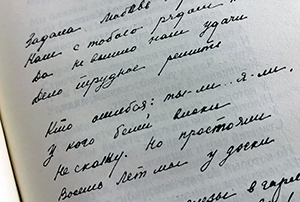 Задала любовь
Нам с тобою рядом
Да не вышло нам удачи
Дело трудное решить
Кто ошибся: ты-ли... я-ли,
У кого белей виски
Не скажу. Но простояли
Восемь лет мы у доски